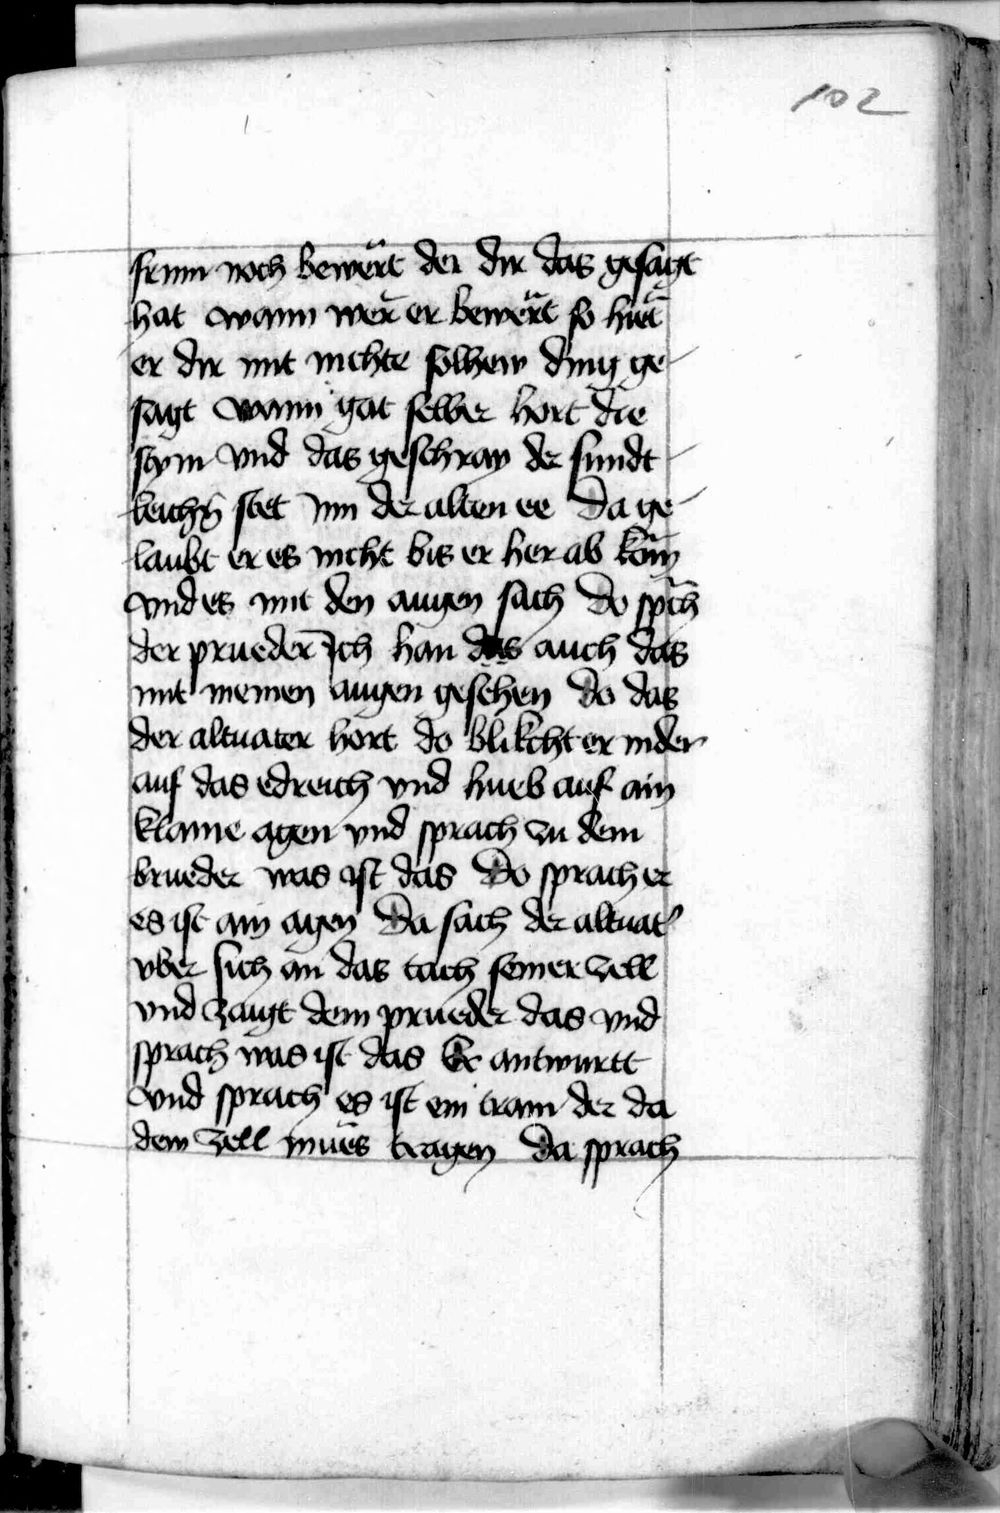 102
frum noch bewërt der dir das gesagt
hat wann wër er bewërt so hiet
er dir mit nichte solhew ding ge-
sagt wann got selber hort die
stym vnd das geschray der sundt
stet ynn der alten ee Da ge-
laubt er es nicht bis er her ab kom
vnd es mit den augen sach do sprach
der prueder Ich han das auch das
mit meinen augen gesehen do das
der altuater hort do blikcht er nider
auf das edreich vnd hueb auf ain
klaine agen vnd sprach zu dem
brueder was ist das Do sprach er
es ist ain agen Da sach der altuat'
vber sich an das tach seiner zell
vnd zaigt dem prueder das vnd
sprach was ist das Er antwurtt
vnd sprach es ist ein tram der da
dew zell mues tragen Da sprach